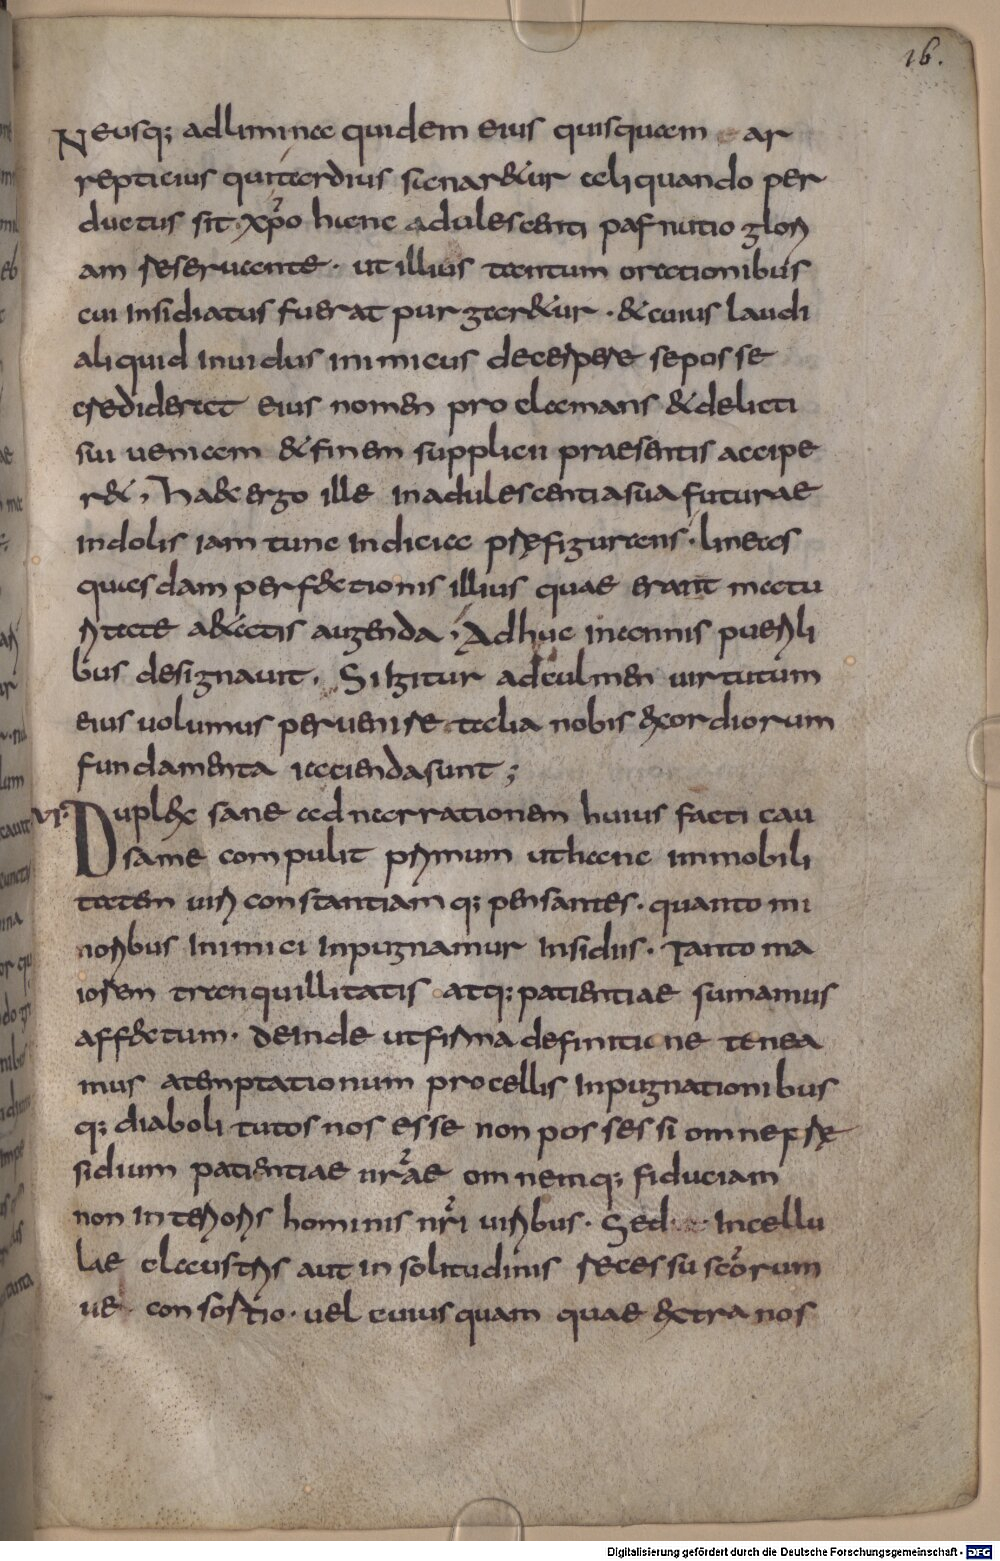 16.
Neusq; adlimina quidem eius quisquam ar
repticius quitardius sanar&ur aliquando per
ductus sit. xpo hanc adulescenti pafnutio glori
am reseruante. ut illius tantum orationibus
cui insidiatus fuerat purgar&ur. & cuius laudi
aliquid inuidus inimicus decerpere seposse
crediderat eius nomen proclamans & delicti
sui ueniam & finem supplicii praesentis accipe
r&, Haec ergo ille inadulescentiasua futurae
indolis iam tunc indicia pręfigurans. lineas
quasdam perf&ctionis illius quae erant matu
ritate a&atis augenda, Adhuc inannis pueRli
bus designauit. Sigitur adculmen uirtutum
eius uolumus peruenire talia nobis &xordiorum
fundamenta iaciendasunt;
VI. Dupl&x sane adnarrationem huius facti cau
same compulit primum uthanc immobili
tatem uiri constantiamq; pensantes. quanto mi
noribus inimici inpugnamur insidiis. Tanto ma
iorem tranquillitatis atq; patientiae sumamus
aff&ctum. deinde utfirma definitione tenea
mus atemptationum procellis inpugnationibus
q; diaboli tutos nos esse non posse si omneprę
sidium patientiae nrae omnemq; fiduciam
non interioris hominis nri uiribus. Sed incellu
lae claustris aut in solitudinis recessu scorum
ue consortio. uel cuiusquam quae &xtra nos